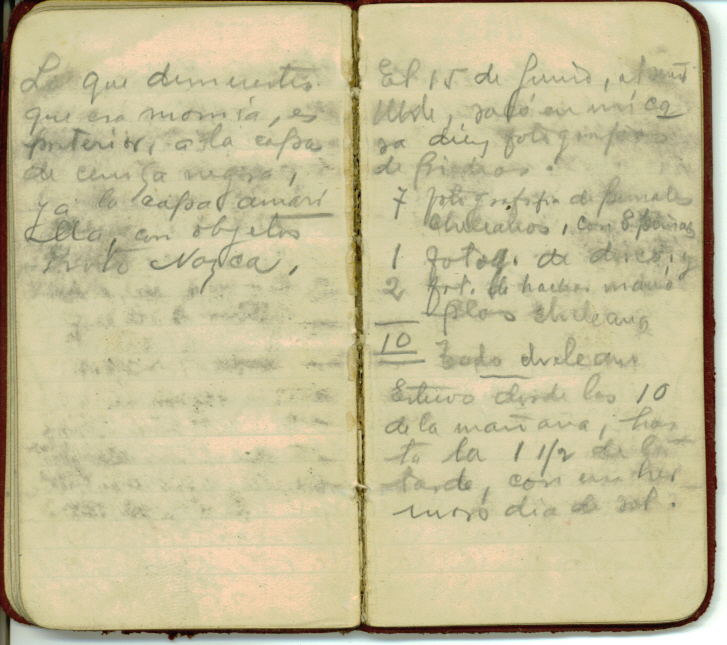 Lo que demuestra
que esa momia, es
posterior, a la capa
de ceniza negra,
y a la capa amari
lla, con objetos
Proto Nazca.
El 15 de Junio, el
Uhle, sacó en mi ca
sa diez fotografías
de piedras.
7 fotografía de punales
chileanos, con 8
1 fotog. de disco, y
2 fot. de hachas
chileano
10 Todo chileano
Estuvo desde las 10
de la mañana, has
ta la 1 1/2 de la
tarde, con un her
moso dia de sol.